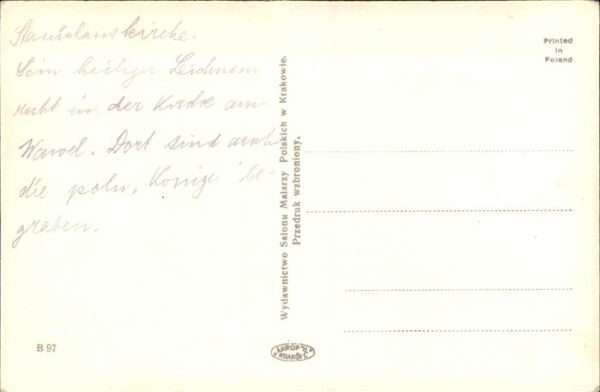 Stanislauskirche.
Sein heiliger Leichnam
ruht in der Kirche am
Wawel. Dort sind auch
die poln. Könige be-
graben.
Wydawnictwo Salonu Malarzy Polskich w Krakowie.
Przedruk wzbroniony.
Printed
in
Poland
B 97
"AKROPOL"
KRAKÓW